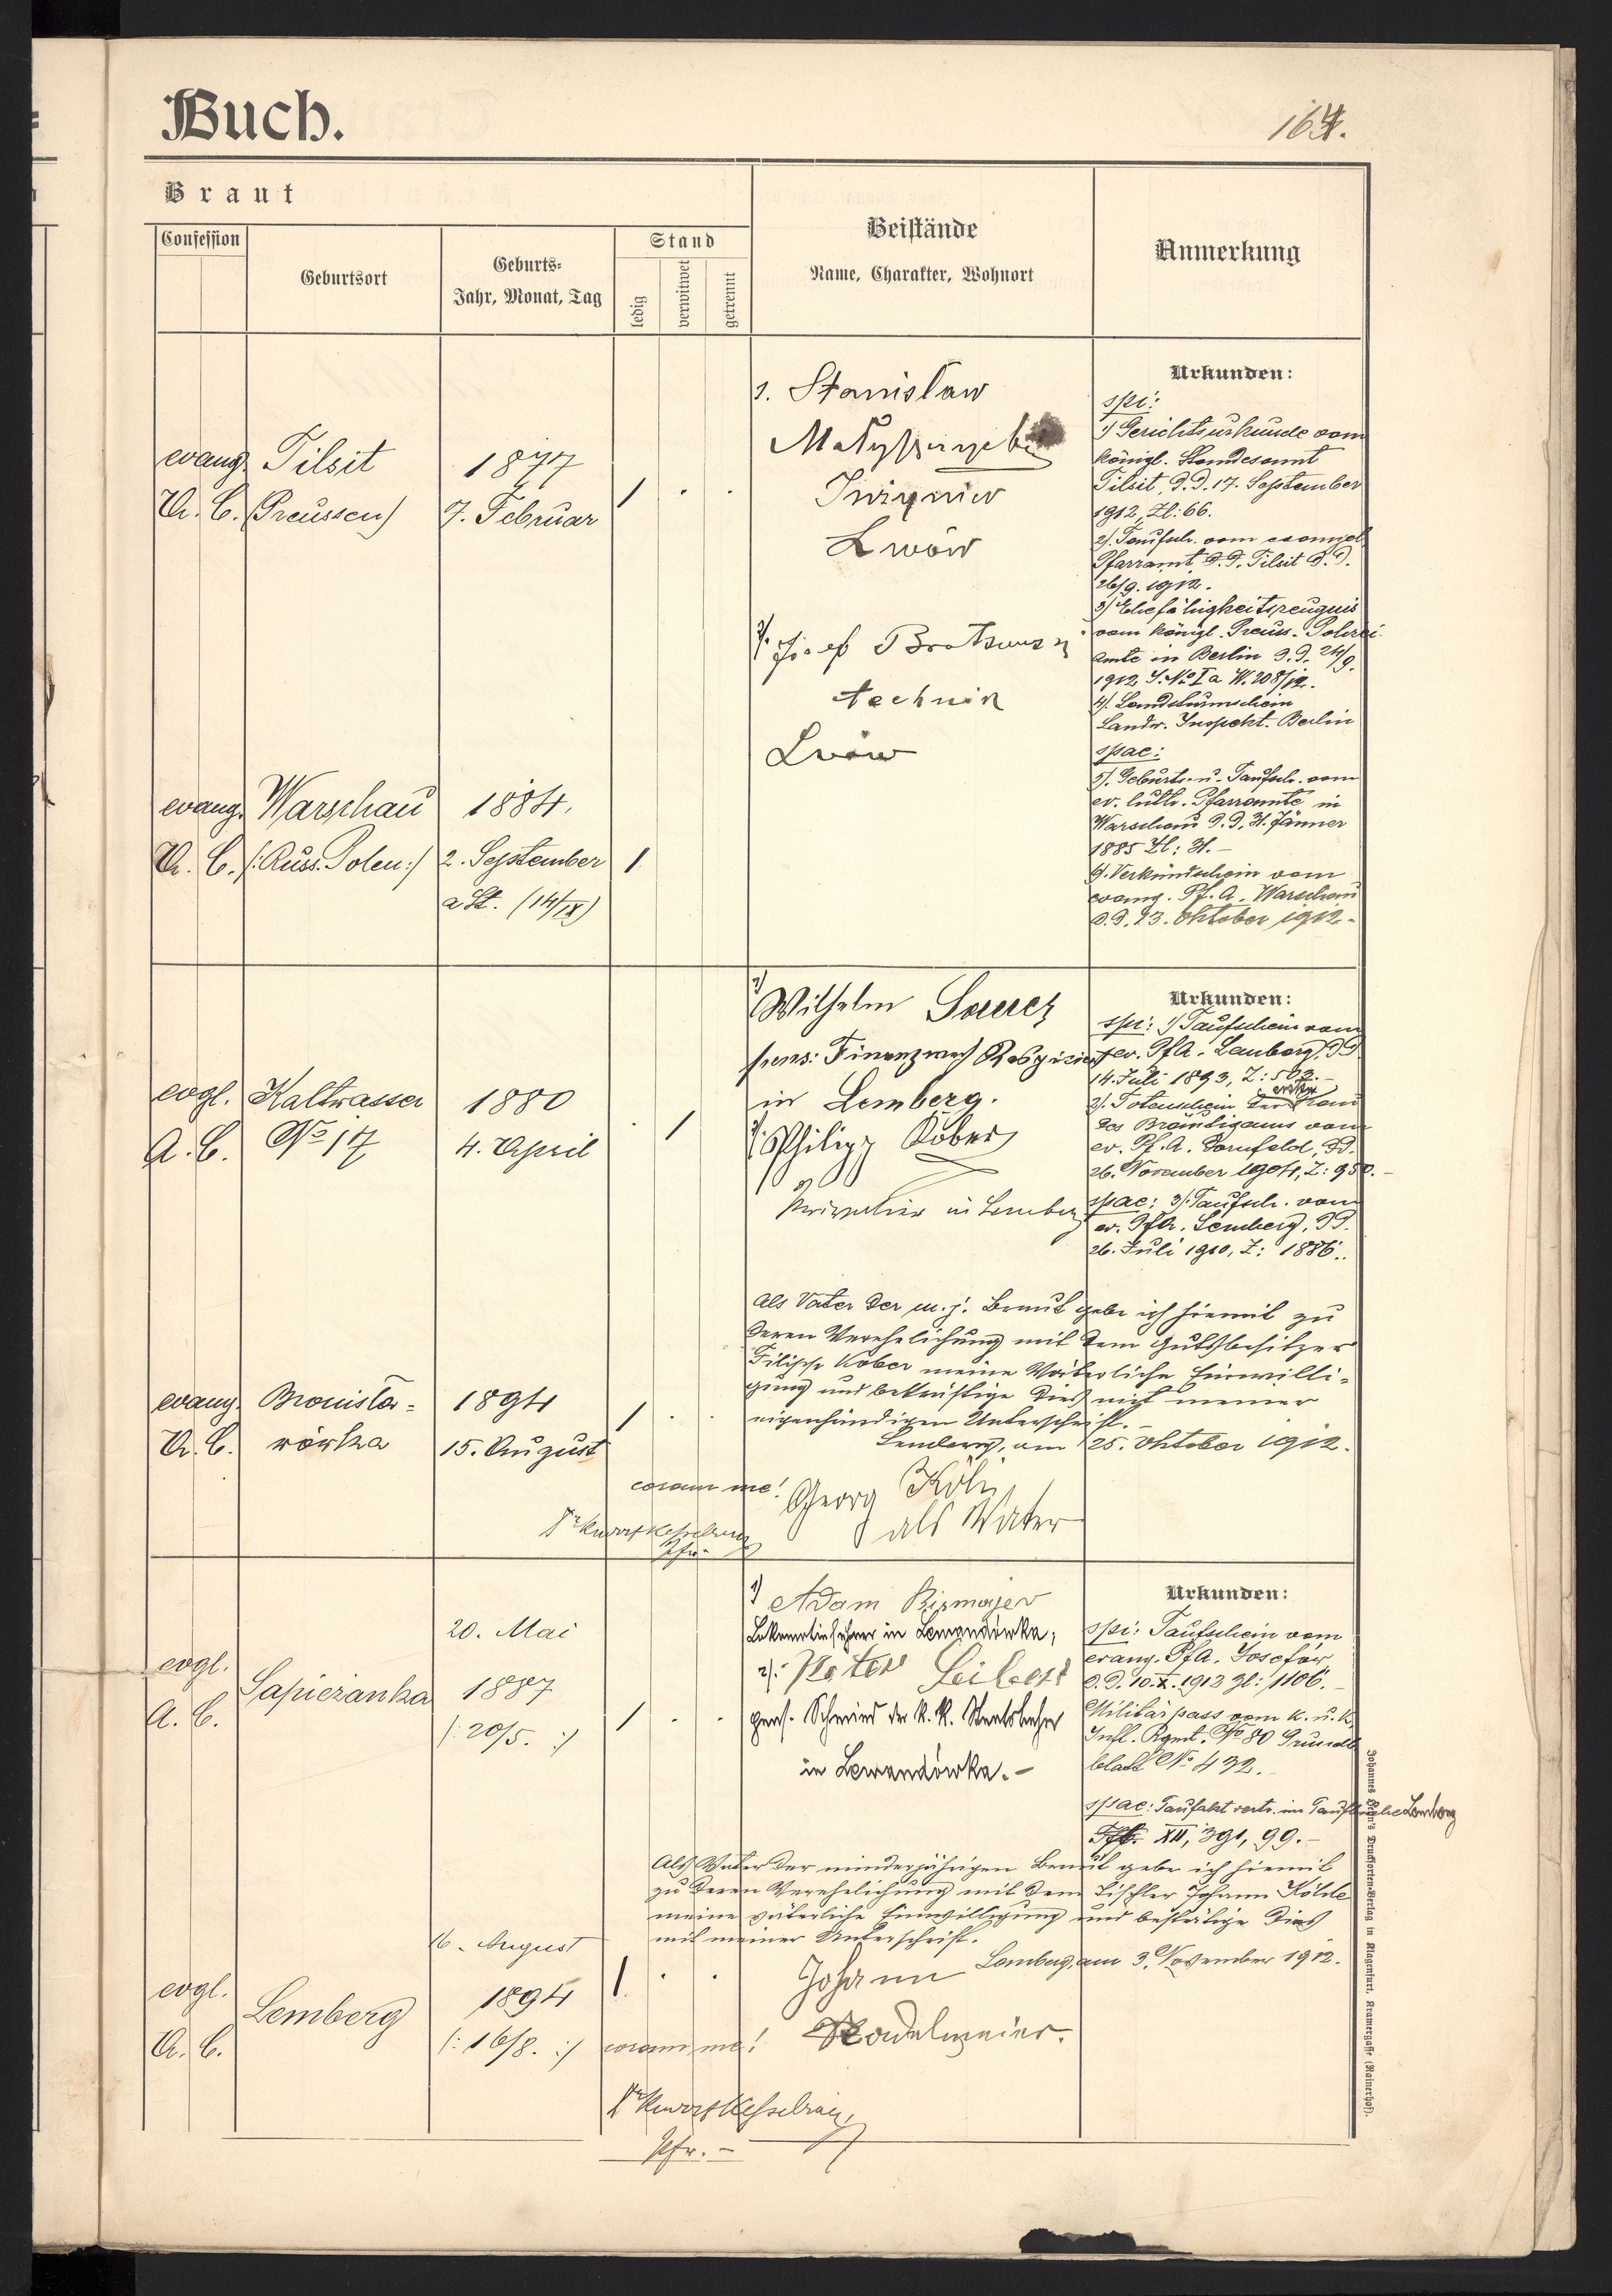 Buch.
164.
Braut
Beistände
Name, Charakter, Wohnort
Anmerkung
Confession
Geburtsort
Geburts-
Jahr, Monat, Tag
Stand
ledig
verwitwet
getrennt
evang.
A. C.
Tilsit
(Preussen)
1877
7. Februar
1. Stanisław
Lwów
2/. Józef
technik
Lwów
Urkunden:
spi:
1) Gerichtsurkunde vom
königl. Standesamt
Tilsit, d.d. 17. September
1912, Zl: 66.
2/. Taufsch. vom evangel.
Pfarramt d.d. Tilsit d.d.
26/9. 1912.
3/ Ehefähigkeitszeugnis
vom königl. Preuss. Polizei
amte in Berlin d.d. 24/9.
1912 J. No I a W. 208/12.
4/. Landsturmschein
Landw. Inspekt. Berlin
spae:
5/. Geburts- u. Taufsch. vom
ev. luth. Pfarramte in
Warschau d.d. 31. Jänner
1885 Zl: 31.-
6/. Verkündschein vom
evang. Pf. A. Warschau
d.d. 23. Oktober 1912.-
evang.
A. C.
Warschau
(: Russ. Polen :)
1884.
2. September
a St. (14/IX)
evgl.
A. C.
Kaltwasser
No 17
1880
4. April
1/ Wilhelm
Finanzwach Respizient
in Lemberg.
2/. Philipp Kober
Privatier in Lemberg
Urkunden:
spi: 1) Taufschein vom
ev. PfA. Lemberg, dd
14. Juli 1893, Z: 502.-
ersten
2/. Totenschein der Frau
des Bräutigams vom
ev. Pf. A. Dornfeld, dd.
26. November 1904, Z: 950.-
spae: 3/. Taufsch. vom
ev. PfA. Lemberg, dd.
26. Juli 1910, Z: 1886.
evang.
A. C.
Bronisła-
wówka
1894
15. August
Als Vater der m. j. Braut gebe ich hiemit zu
deren Verehelichung mit dem Gutsbesitzer
Filipp Kober meine Väterliche Einwilli-
gung und bekräftige dies mit meiner
eigenhändigen Unterschrift.-
Lemberg, am 25. Oktober 1912.
coram me!
Georg
als Vater
Dr Kesselring
Pfr.-
evgl.
A. C.
Sapieżanka
20. Mai
1887
(: 20/5. :)
1/ Adam
in Lewandówka;
2/. Peter
pens. Schmied der k. k. Staatsbahn
in Lewandówka.-
Urkunden:
spi: Taufschein vom
evang. PfA. Josefów
d.d. 10. X. 1912 Zl: 1106.-
Militärpass vom k. u. k.
Inft. Rgmt. No 80 Grund
blatt No 432.-
spae: Taufakt in Taufbuche Lemberg
XII, 391, 99.-
Als Vater der minderjährigen Braut gebe ich hiemit
zu deren Verehelichung mit dem Tischler Johann Kölle
meine väterliche Einwilligung und bestätige dies
mit meiner Unterschrift.
Lemberg, am 3. November 1912.
evgl.
A. C.
Lemberg
16. August
1894
(: 16/8. :)
coram me!
Johann
Dr Kesselring,
Pfr.-
Johannes Druckforten-Verlag in Klagenfurt, Kramergasse (Rainerhof).